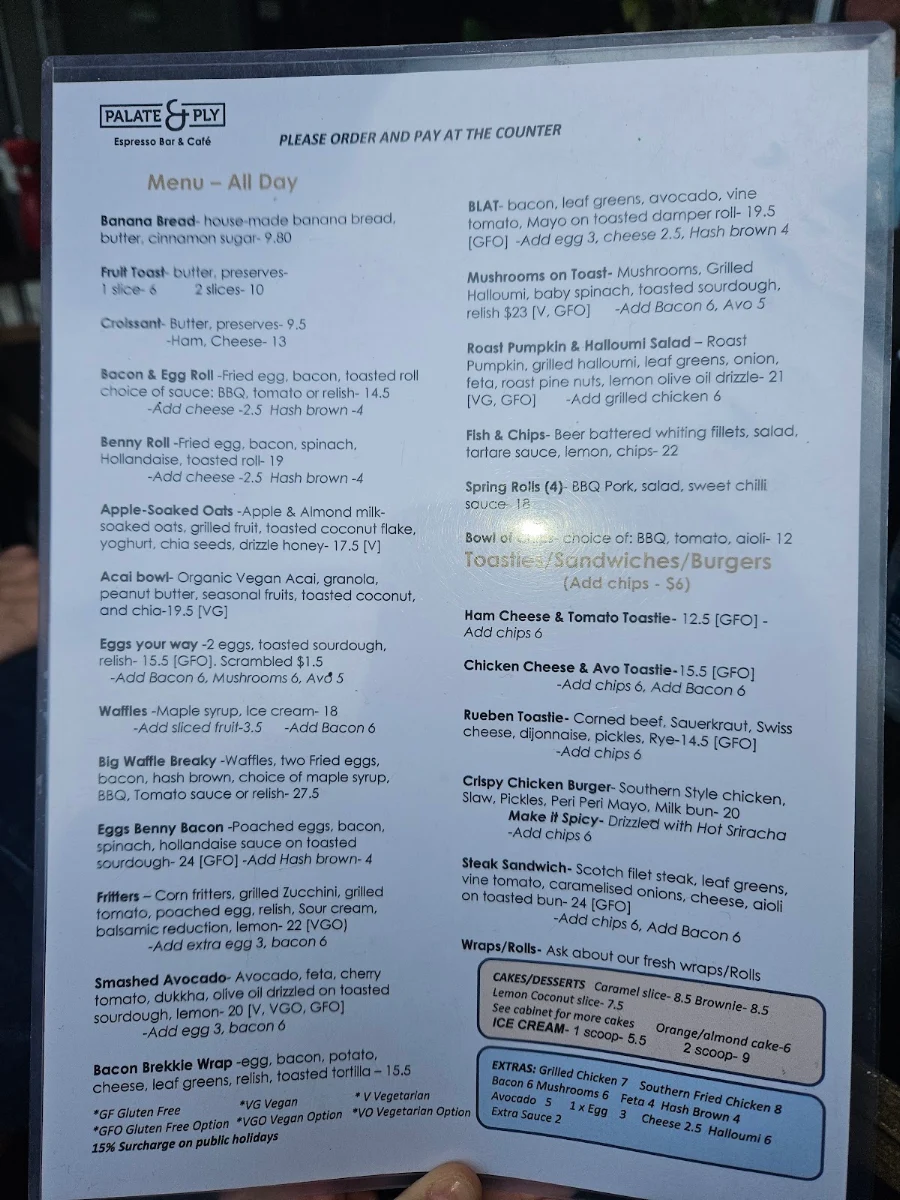 PALATE & PLY
Espresso Bar & Café
PLEASE ORDER AND PAY AT THE COUNTER
Menu – All Day
Banana Bread- house-made banana bread,
butter, cinnamon sugar- 9.80
Fruit Toast- butter, preserves-
1 slice- 6 2 slices- 10
Croissant- Butter, preserves- 9.5
-Ham, Cheese- 13
Bacon & Egg Roll -Fried egg, bacon, toasted roll
choice of sauce: BBQ, tomato or relish- 14.5
-Add cheese -2.5 Hash brown -4
Benny Roll -Fried egg, bacon, spinach,
Hollandaise, toasted roll- 19
-Add cheese -2.5 Hash brown -4
Apple-Soaked Oats -Apple & Almond milk-
soaked oats, grilled fruit, toasted coconut flake,
yoghurt, chia seeds, drizzle honey- 17.5 [V]
Acai bowl- Organic Vegan Acai, granola,
peanut butter, seasonal fruits, toasted coconut,
and chia-19.5 [VG]
Eggs your way -2 eggs, toasted sourdough,
relish- 15.5 [GFO]. Scrambled $1.5
-Add Bacon 6, Mushrooms 6, Avo 5
Waffles -Maple syrup, Ice cream- 18
-Add sliced fruit-3.5 -Add Bacon 6
Big Waffle Breaky -Waffles, two Fried eggs,
bacon, hash brown, choice of maple syrup,
BBQ, Tomato sauce or relish- 27.5
Eggs Benny Bacon -Poached eggs, bacon,
spinach, hollandaise sauce on toasted
sourdough- 24 [GFO] -Add Hash brown- 4
Fritters – Corn fritters, grilled Zucchini, grilled
tomato, poached egg, relish, Sour cream,
balsamic reduction, lemon- 22 [VGO)
-Add extra egg 3, bacon 6
Smashed Avocado- Avocado, feta, cherry
tomato, dukkha, olive oil drizzled on toasted
sourdough, lemon- 20 [V, VGO, GFO]
-Add egg 3, bacon 6
Bacon Brekkie Wrap -egg, bacon, potato,
cheese, leaf greens, relish, toasted tortilla – 15.5
*GF Gluten Free *VG Vegan * V Vegetarian
*GFO Gluten Free Option *VGO Vegan Option *VO Vegetarian Option
15% Surcharge on public holidays
BLAT- bacon, leaf greens, avocado, vine
tomato, Mayo on toasted damper roll- 19.5
[GFO] -Add egg 3, cheese 2.5, Hash brown 4
Mushrooms on Toast- Mushrooms, Grilled
Halloumi, baby spinach, toasted sourdough,
relish $23 [V, GFO] -Add Bacon 6, Avo 5
Roast Pumpkin & Halloumi Salad – Roast
Pumpkin, grilled halloumi, leaf greens, onion,
feta, roast pine nuts, lemon olive oil drizzle- 21
[VG, GFO] -Add grilled chicken 6
Fish & Chips- Beer battered whiting fillets, salad,
tartare sauce, lemon, chips- 22
Spring Rolls (4)- BBQ Pork, salad, sweet chilli
sauce- 18
Bowl of chips- choice of: BBQ, tomato, aioli- 12
Toasties/Sandwiches/Burgers
(Add chips - $6)
Ham Cheese & Tomato Toastie- 12.5 [GFO] -
Add chips 6
Chicken Cheese & Avo Toastie-15.5 [GFO]
-Add chips 6, Add Bacon 6
Rueben Toastie- Corned beef, Sauerkraut, Swiss
cheese, dijonnaise, pickles, Rye-14.5 [GFO]
-Add chips 6
Crispy Chicken Burger- Southern Style chicken,
Slaw, Pickles, Peri Peri Mayo, Milk bun- 20
Make it Spicy- Drizzled with Hot Sriracha
-Add chips 6
Steak Sandwich- Scotch filet steak, leaf greens,
vine tomato, caramelised onions, cheese, aioli
on toasted bun- 24 [GFO]
-Add chips 6, Add Bacon 6
Wraps/Rolls- Ask about our fresh wraps/Rolls
CAKES/DESSERTS Caramel slice- 8.5 Brownie- 8.5
Lemon Coconut slice- 7.5
See cabinet for more cakes Orange/almond cake-6
ICE CREAM- 1 scoop- 5.5 2 scoop- 9
EXTRAS: Grilled Chicken 7 Southern Fried Chicken 8
Bacon 6 Mushrooms 6 Feta 4 Hash Brown 4
Avocado 5 1 x Egg 3 Cheese 2.5 Halloumi 6
Extra Sauce 2